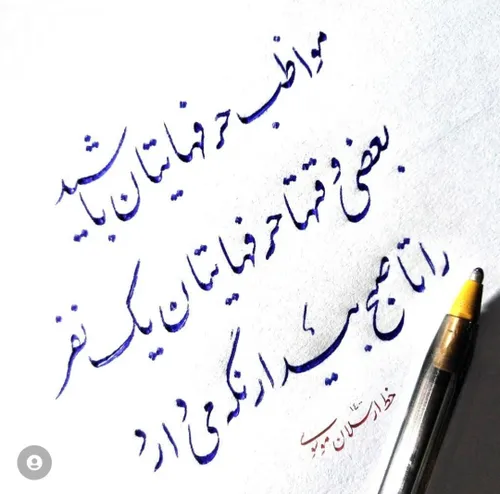 مواظب حرفهایتان باشید
بعضی وقتها حرفهایتان یک نفر
را تا صبح بیدار نگه می دارد
خط ارسلان موسوی